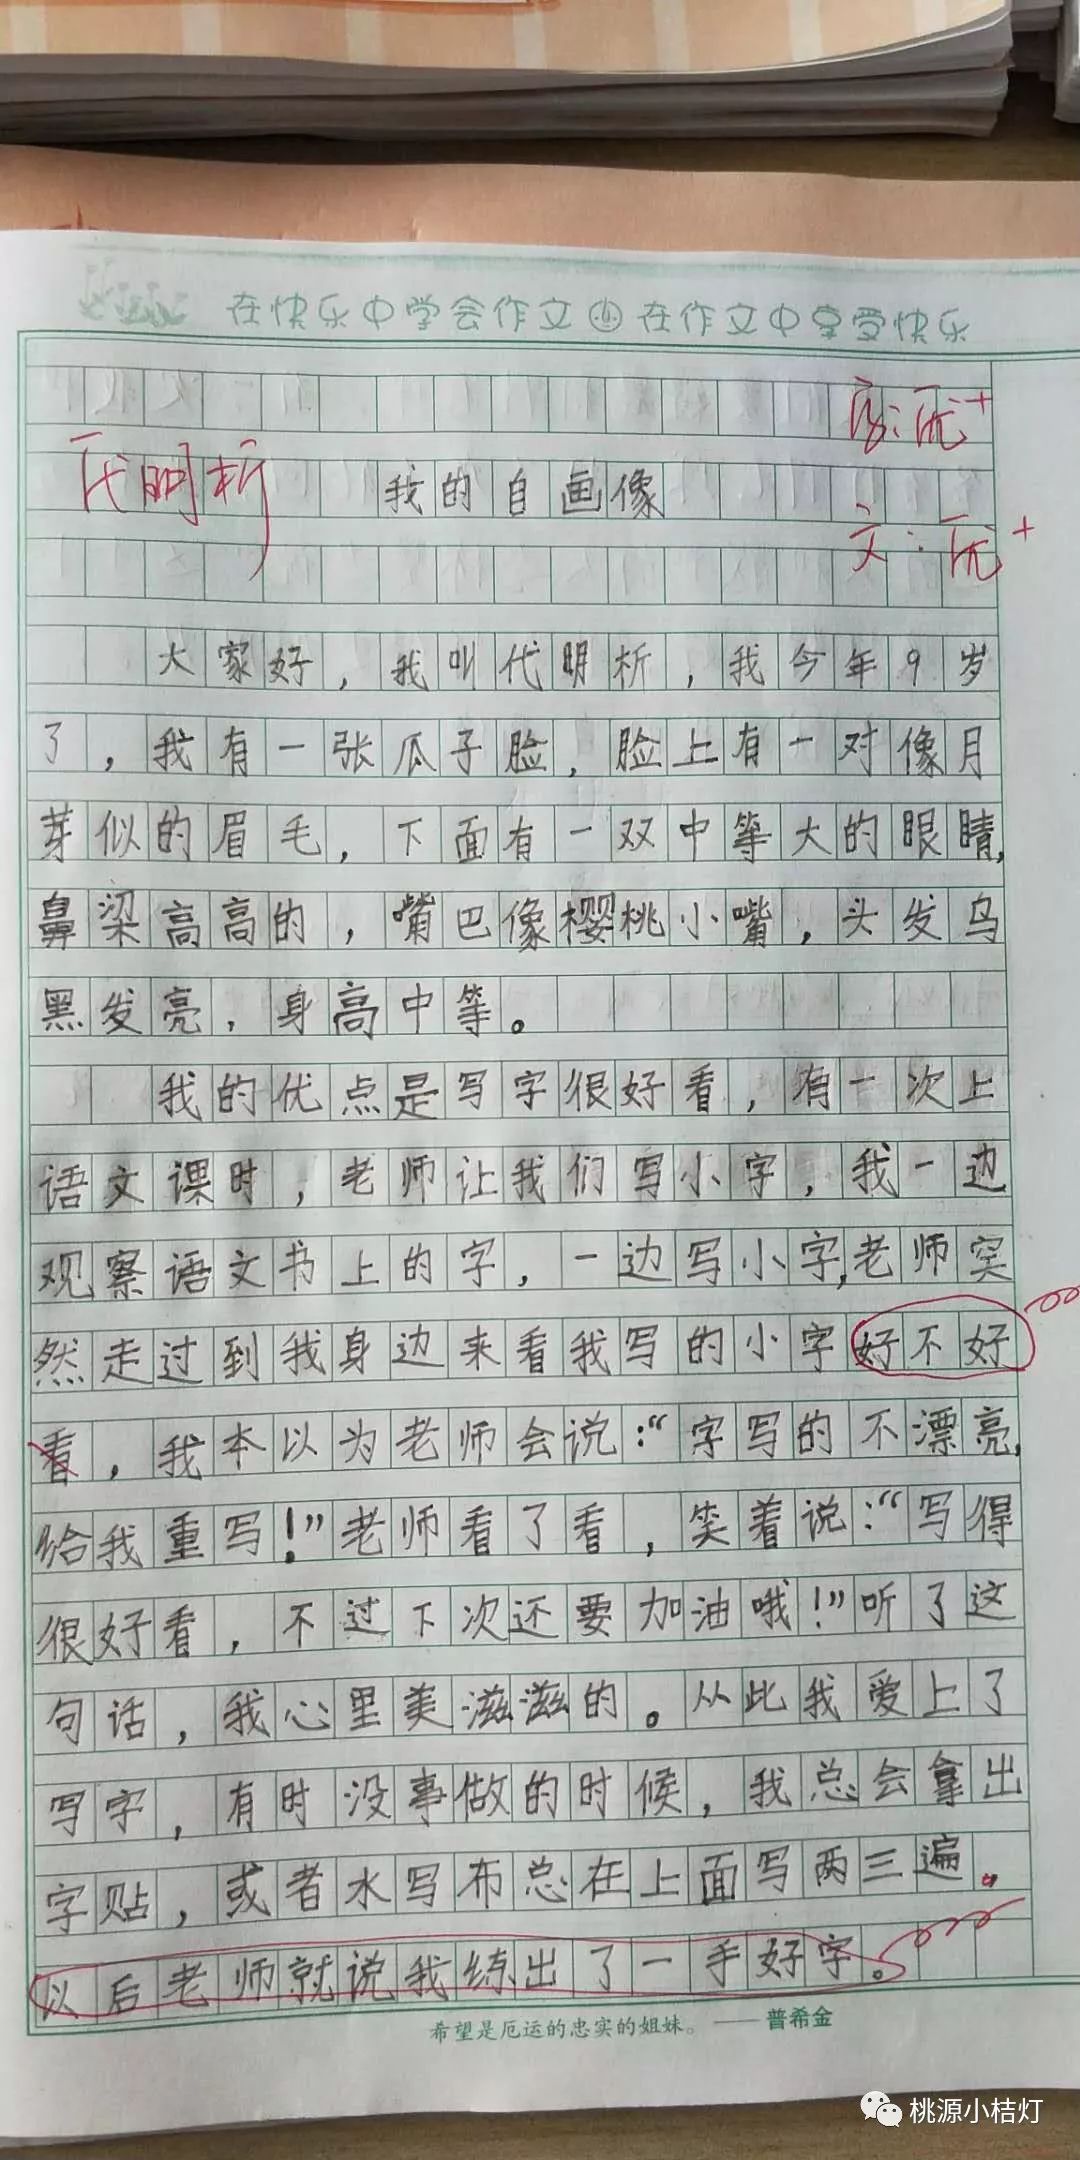 在快乐中学会作文㊣在作文中享受快乐
优+
代明析 我的自画像
文:优+
大家好，我叫代明析，我今年9岁
了，我有一张瓜子脸，脸上有一对像月
芽似的眉毛，下面有一双中等大的眼睛，
鼻梁高高的，嘴巴像樱桃小嘴，头发乌
黑发亮，身高中等。
我的优点是写字很好看，有一次上
语文课时，老师让我们写小字，我一边
观察语文书上的字，一边写小字，老师突
然走过到我身边来看我写的小字好不好
看，我本以为老师会说：“字写的不漂亮，
给我重写！”老师看了看，笑着说：“写得
很好看，不过下次还要加油哦！”听了这
句话，我心里美滋滋的。从此我爱上了
写字，有时没事做的时候，我总会拿出
字贴，或者水写布总在上面写两三遍。
以后老师就说我练出了一手好字。
希望是厄运的忠实的姐妹。——普希金
桃源小桔灯